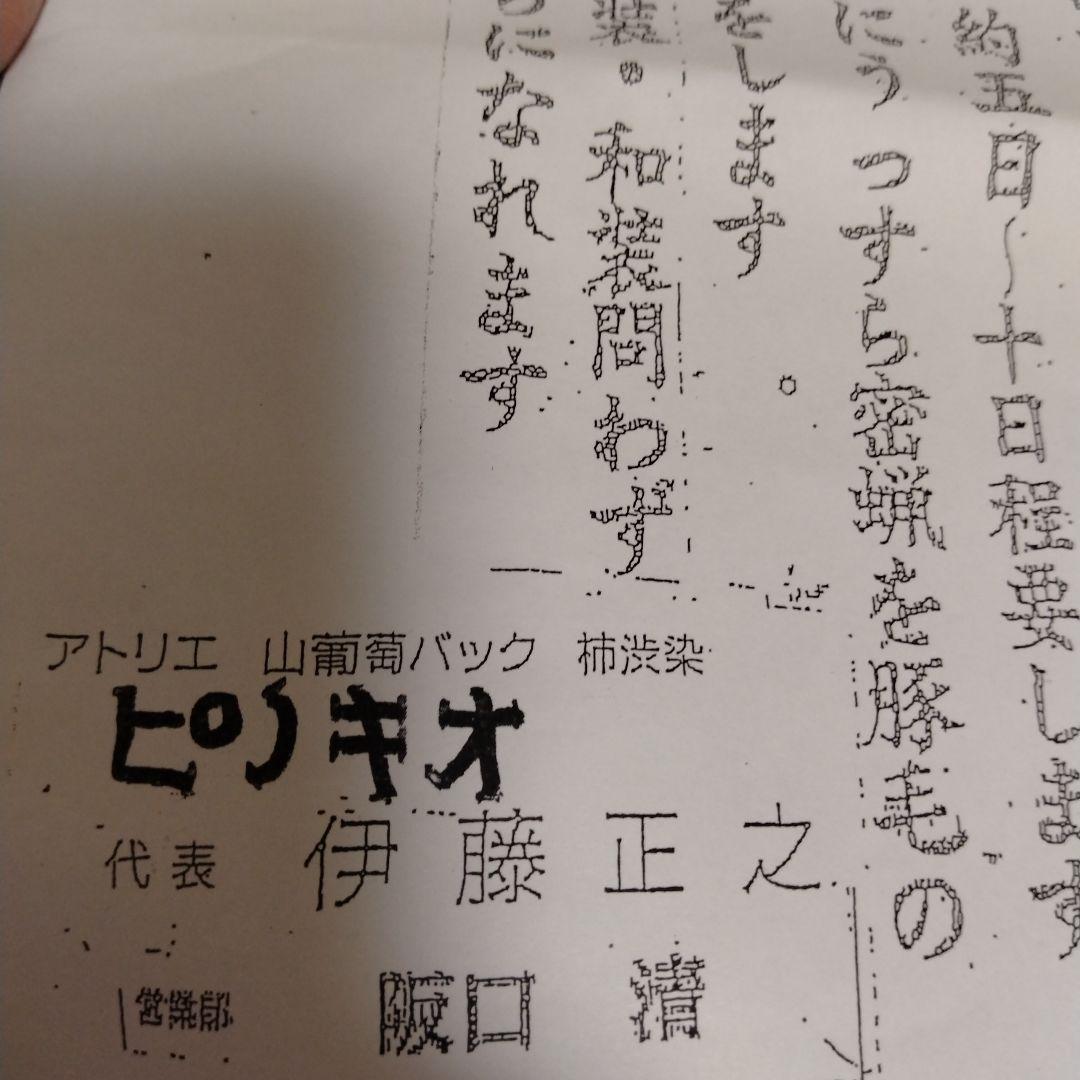 約五日～十日程要します
にうっすら密猟を豚毛の
をします
装。和装問わず
になれます
アトリエ 山葡萄バック 柿渋染
ピノキオ
代表 伊藤正之
営業部 阪口